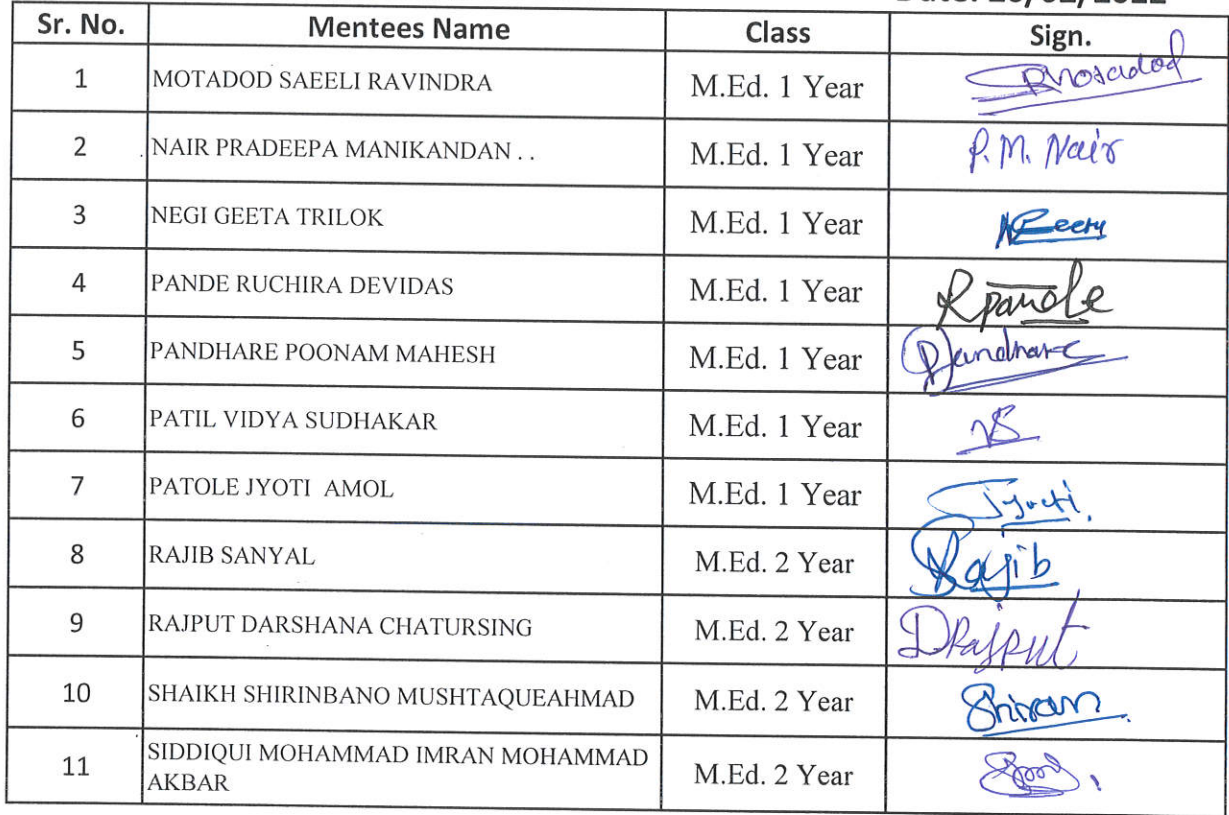 Sr. No. Mentees Name Class Sign.
1 MOTADOD SAEELI RAVINDRA M.Ed. 1 Year
2 NAIR PRADEEPA MANIKANDAN . . M.Ed. 1 Year P. M. Nair
3 NEGI GEETA TRILOK M.Ed. 1 Year
4 PANDE RUCHIRA DEVIDAS M.Ed. 1 Year Rpande
5 PANDHARE POONAM MAHESH M.Ed. 1 Year Pandhare
6 PATIL VIDYA SUDHAKAR M.Ed. 1 Year
7 PATOLE JYOTI AMOL M.Ed. 1 Year Jyoti
8 RAJIB SANYAL M.Ed. 2 Year Rajib
9 RAJPUT DARSHANA CHATURSING M.Ed. 2 Year DRajput
10 SHAIKH SHIRINBANO MUSHTAQUEAHMAD M.Ed. 2 Year
11 SIDDIQUI MOHAMMAD IMRAN MOHAMMAD
AKBAR M.Ed. 2 Year